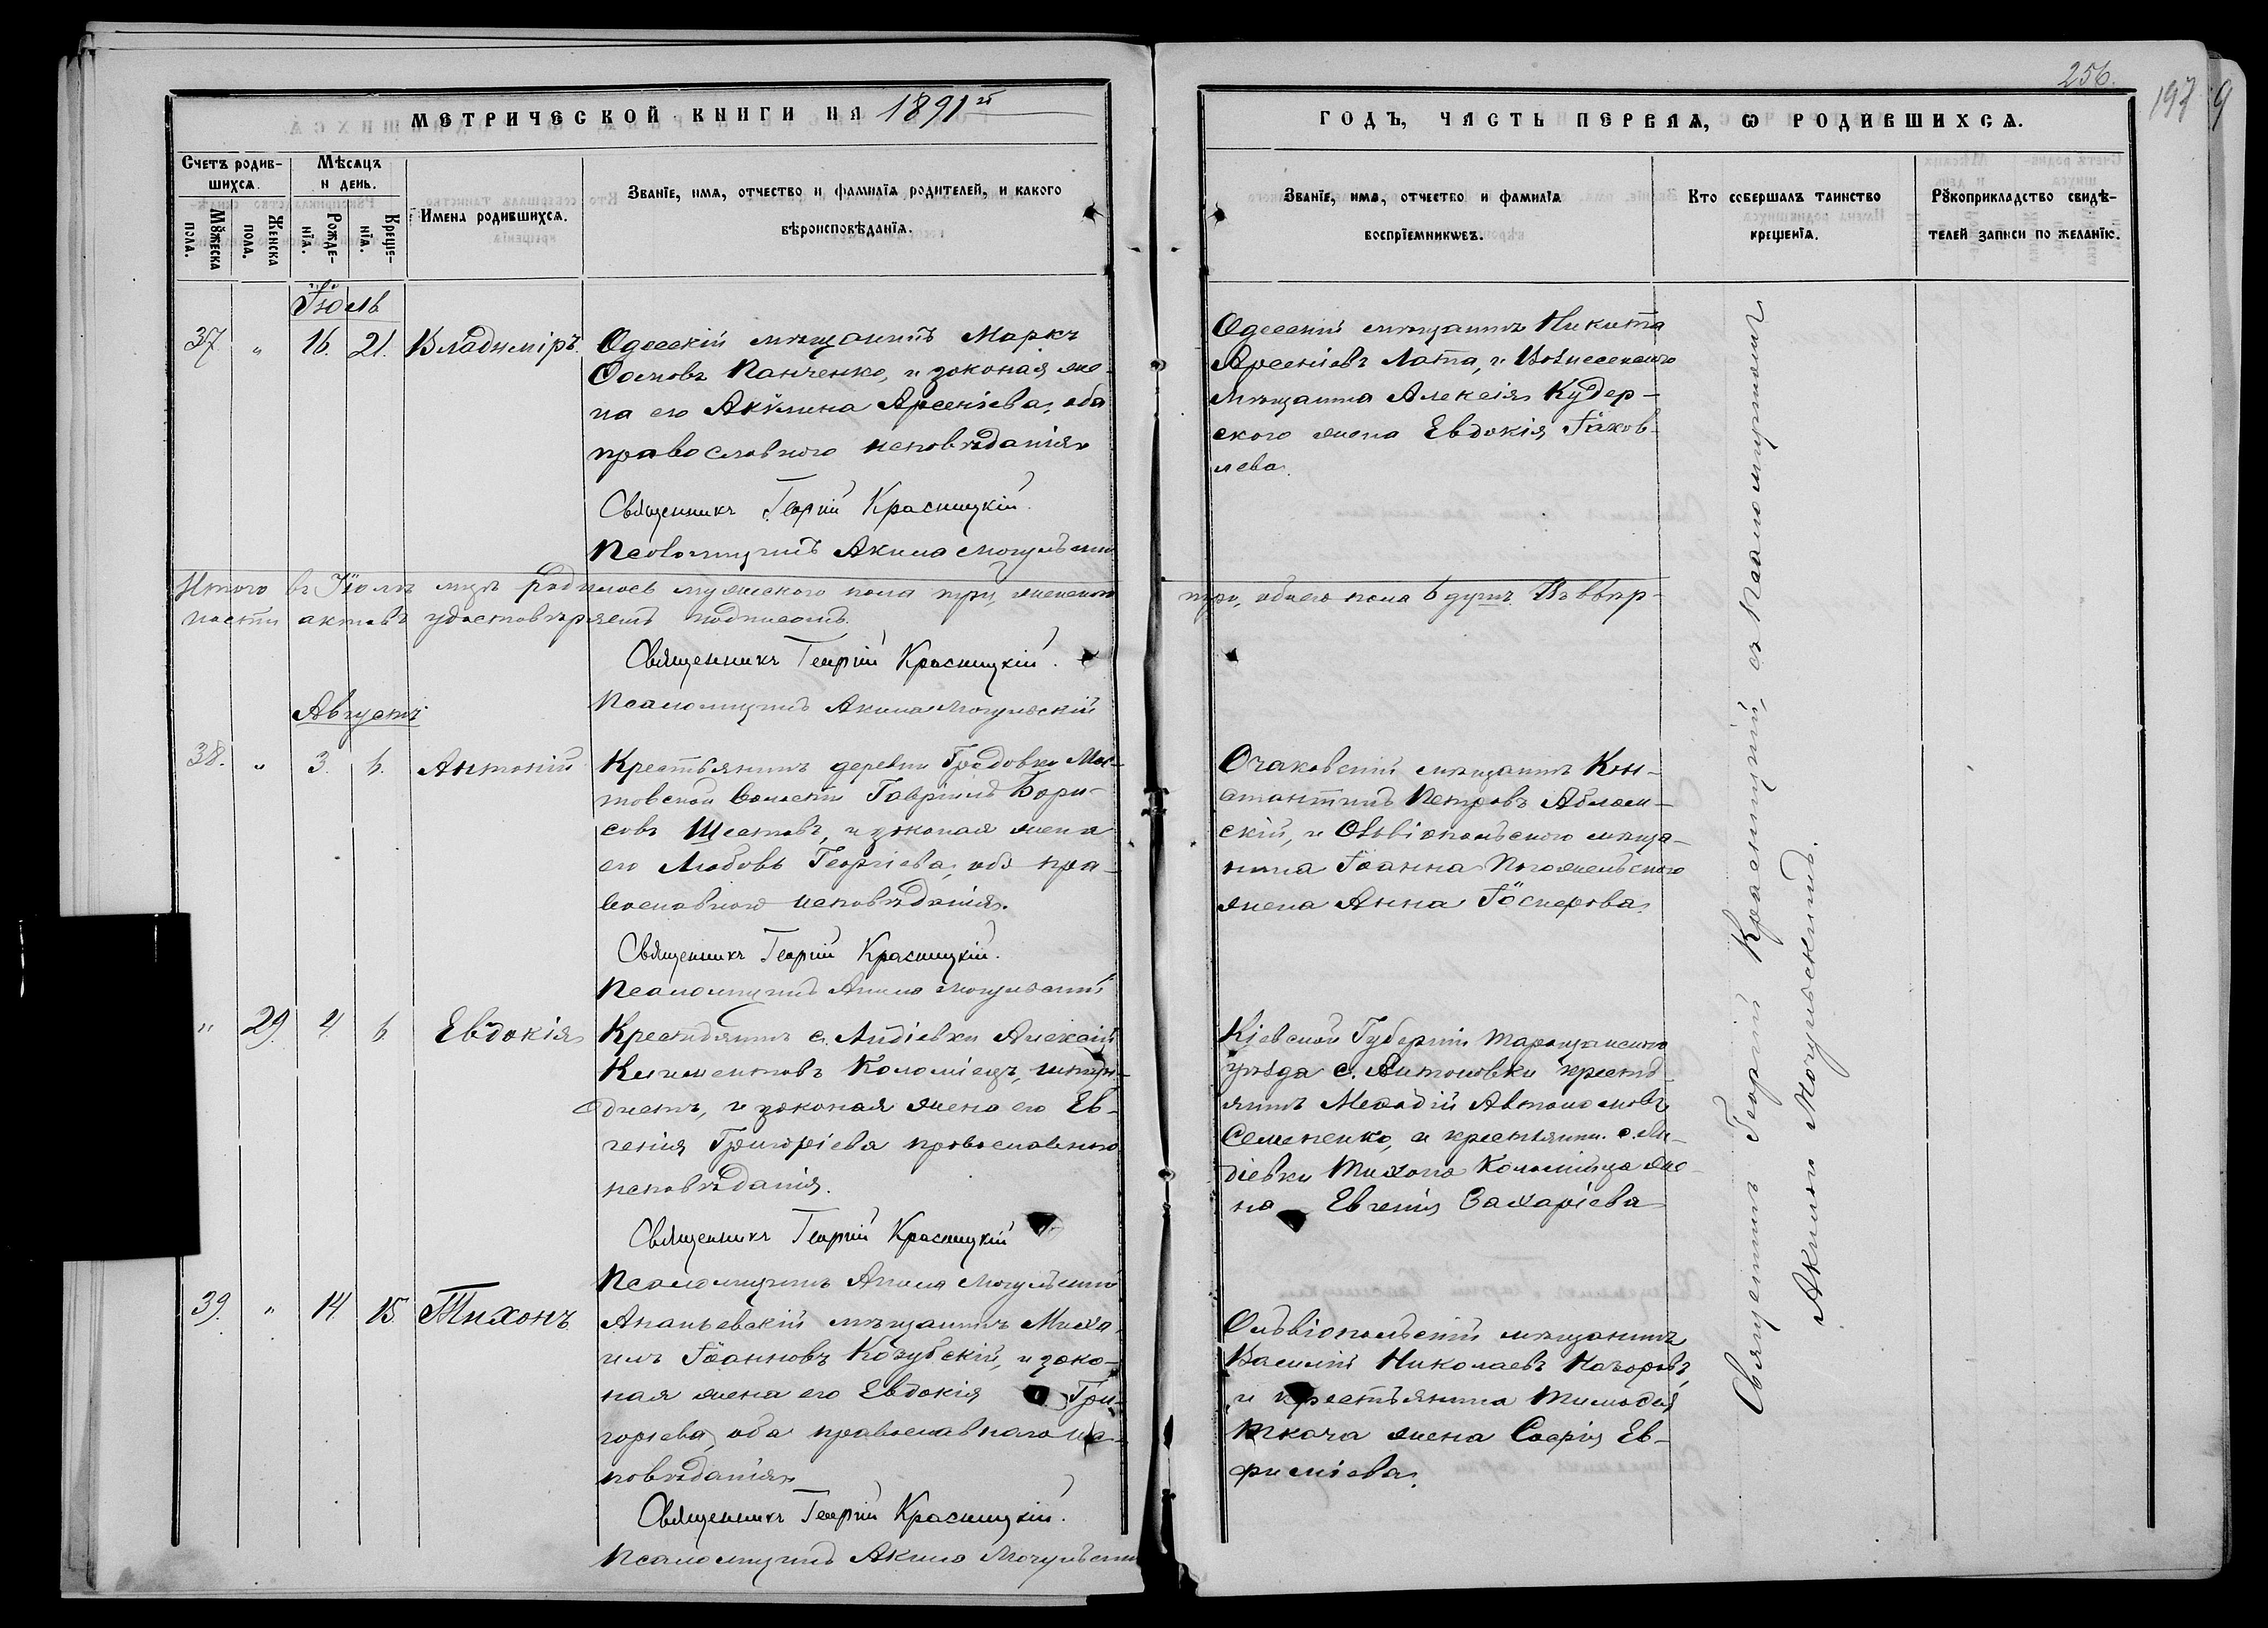 256.
197 9
МЕТРИЧЕСКОЙ КНИГИ НА 1891й
ГОДЪ, ЧАСТЬ ПЕРВАЯ, Ѡ РОДИВШИХСѦ.
Счетъ родившихсѧ.
Мꙋжеска пола.
Женска пола.
Мѣсяцъ и день.
Рожденїѧ.
Крещенїѧ.
Имена родившихсѧ.
Званїе, имѧ, отчество и фамилїѧ родителей, и какого
вѣроисповѣданїѧ.
Званїе, имѧ, отчество и фамилїѧ
воспрїемникѡвъ.
Кто совершалъ таинство
крещенїѧ.
Рꙋкоприкладство свидѣ-
телей записи по желанїю.
Іюль
37 " 16. 21. Владиміръ.
Одесскій мѣщанинъ Маркъ
Панченко, и законая же-
на его Акулина Арсеніева, оба
православного исповѣданія
Священникъ Георгій Красницкій.
Псаломщикъ Акила
Одесскій мѣщанинъ Никита
Арсеніевъ Лата, и Вознесенского
мѣщанина Алексія Кудер-
ского жена Евдокія Іаков-
лева.
Итого въ Іюлѣ мцѣ родилось мужеского пола три, женского
три, обоего пола 6 душъ. Въ вѣр-
ности актовъ удостовѣряемъ подписомъ.
Священникъ Георгій Красницкій.
Псаломщикъ Акила
Августъ
38. " 3. 6. Антоній
Крестьянинъ деревни Градовки
волости Гавріилъ Бори-
совъ Шестовъ, и законая жена
его Любовь Георгіева, оба пра-
вославного исповѣданія.
Священникъ Георгій Красницкій.
Псаломщикъ Акила
Очаковскій мѣщанинъ Кон-
стантинъ Петровъ
скій, и Ольвіопольского мѣща-
нина Іоанна
жена Анна
" 29. 4. 6. Евдокія
Крестьянинъ с. Лидіевки Алексій
Климентовъ Коломіецъ,
и законая жена его Ев-
генія Григоріева православного
исповѣданія.
Священникъ Георгій Красницкій
Псаломщикъ Акила
Кіевской Губерніи Таращанского
уѣзда с. Антоновки крестья-
нинъ Меѳодій Автономовъ
Семененко, и крестьянин. с. Ли-
діевки Тихона Коломійца же-
на Евгенія Захаріева
39. " 14. 15. Тихонъ
Ананьевскій мѣщанинъ Миха-
илъ Іоанновъ Козубскій, и зако-
ная жена его Евдокія Гри-
горіева, оба православнаго ис-
повѣданія
Священникъ Георгій Красницкій.
Псаломщикъ Акила
Ольвіопольскій мѣщанинъ
Василій Николаевъ
и крестьянина Тимоѳея
Ткача жена Софія Ев-
фиміева.
Священникъ Георгій Красницкій, съ Псаломщикомъ